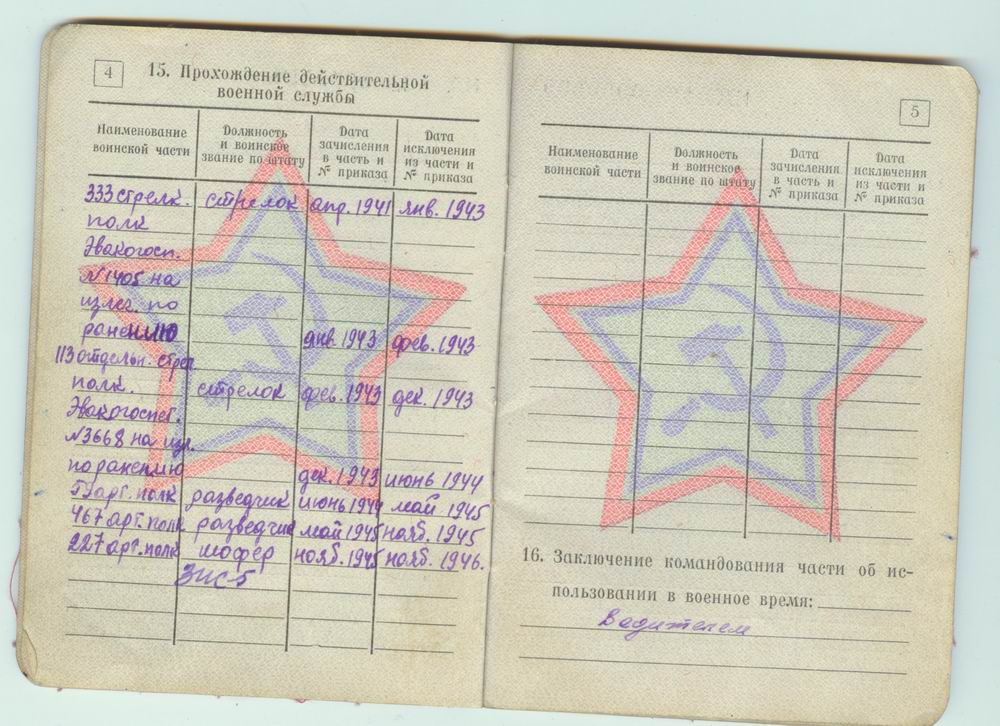 4
15. Прохождение действительной
военной службы
Наименование
воинской части
Должность
и воинское
звание по штату
Дата
зачисления
в часть и
№ приказа
Дата
исключения
из части и
№ приказа
333 стрелк. стрелок апр. 1941 янв. 1943
полк
Эвакогосп.
№ 1405 на
излеч. по
ранению янв. 1943 фев. 1943
113 отдельн. стрел.
полк. стрелок фев. 1943 дек. 1943
Эвакогоспит.
№ 3668 на изл.
по ранению дек. 1943 июнь 1944
59 арт. полк разведчик июнь 1944 май 1945
467 арт. полк разведчик май 1945 нояб. 1945
227 арт. полк шофер нояб. 1945 нояб. 1946.
ЗИС-5
5
Наименование
воинской части
Должность
и воинское
звание по штату
Дата
зачисления
в часть и
№ приказа
Дата
исключения
из части и
№ приказа
16. Заключение командования части об ис-
пользовании в военное время:
Водителем